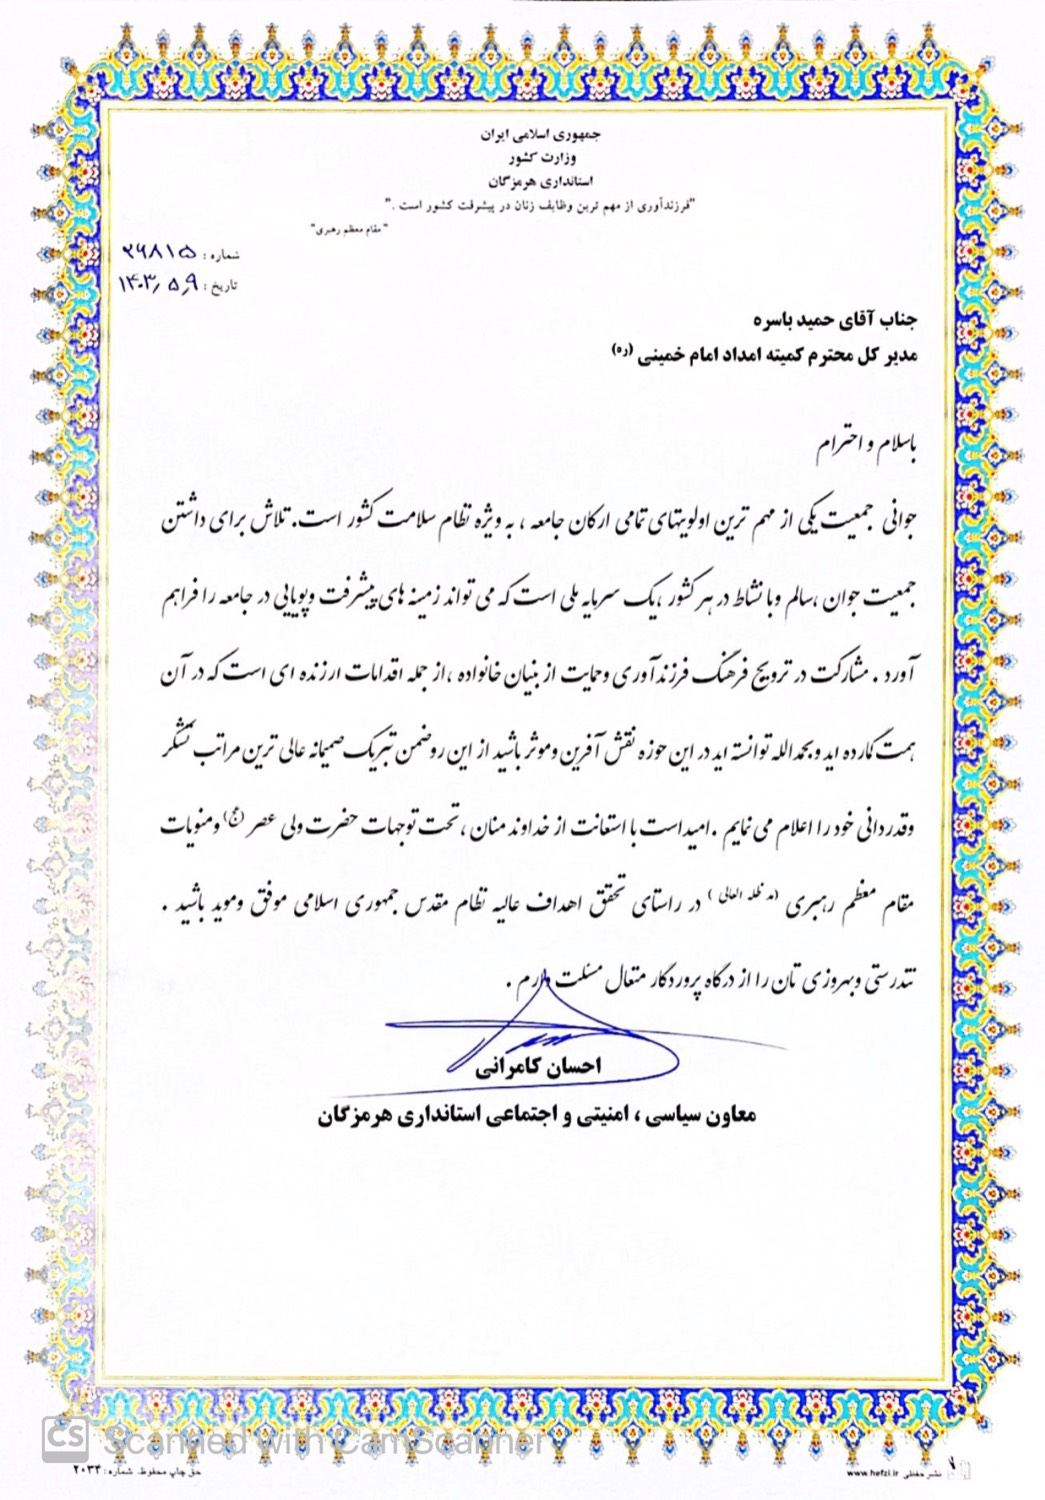 جمهوری اسلامی ایران
وزارت کشور
استانداری هرمزگان
"فرزندآوری از مهم ترین وظایف زنان در پیشرفت کشور است ."
"مقام معظم رهبری"
شماره : ۲۶۸۱۵
تاریخ : ۱۴۰۳٫۵٫۹
جناب آقای حمید باسره
مدیر کل محترم کمیته امداد امام خمینی (ره)
باسلام و احترام
جوانی جمعیت یکی از مهم ترین اولویتهای تمامی ارکان جامعه ، به ویژه نظام سلامت کشور است. تلاش برای داشتن
جمعیت جوان ،سالم وبا نشاط در هر کشور ،یک سرمایه ملی است که می تواند زمینه های پیشرفت وپویایی در جامعه را فراهم
آورد . مشارکت در ترویج فرهنگ فرزندآوری وحمایت از بنیان خانواده ،از جمله اقدامات ارزنده ای است که در آن
همت گمارده اید وبحمدالله توانسته اید در این حوزه نقش آفرین وموثر باشید از این روضمن تبریک صمیمانه عالی ترین مراتب تشکر
وقدردانی خود را اعلام می نمایم .امیداست با استعانت از خداوند منان ،تحت توجهات حضرت ولی عصر (عج) ومنویات
مقام معظم رهبری (مد ظله العالی ) در راستای تحقق اهداف عالیه نظام مقدس جمهوری اسلامی موفق وموید باشید .
تندرستی وبهروزی تان را از درگاه پروردگار متعال مسئلت دارم .
احسان کامرانی
معاون سیاسی ، امنیتی و اجتماعی استانداری هرمزگان
CS Scanned with CamScanner
نشر حفظی www.hefzi.ir
حق چاپ محفوظ. شماره : ۲۰۳۴